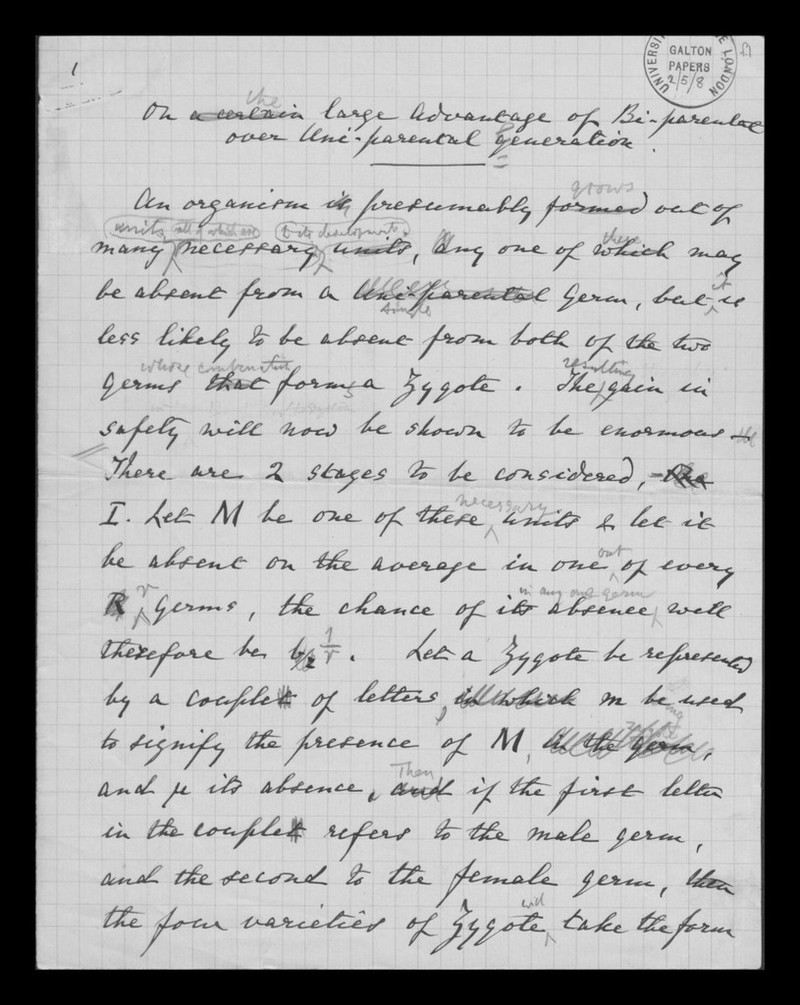 1
UNIVERSITY COLLEGE LONDON
GALTON
PAPERS
2/5/8
the
On a certain large advantage of Bi-parental
over Uni-parental generation.
grows
An organism is presumably formed out of
units all of which are to its development
these
many necessary units, any one of which may
it
be absent from a Uni-parental Germ, but is
simple
less likely to be absent from both of the two
whose combination resulting
germs that forms a Zygote. The gain in
safety will now be shown to be enormous –
There are 2 stages to be considered, – The
necessary
I. Let M be one of these units & let it
out
be absent on the average in one of every
r in any one germ
R Germs, the chance of its absence will
therefore be 1/r. Let a Zygote be represented
by a couplet of letters, in which m be used
to signify the presence of M, in the germ,
Then
and μ its absence, and if the first letter
in the couplet refers to the male germ,
and the second to the female germ, then
will
the four varieties of Zygote take the form